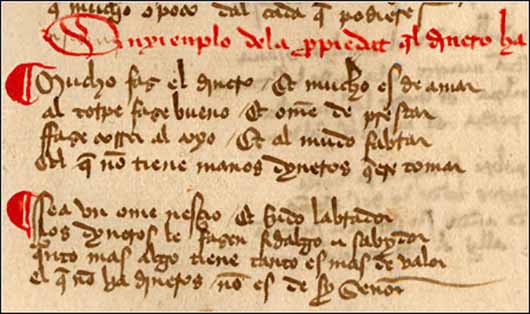 q̃ mucho o poco dal cada q̃ podieres
Enxienplo dela ppiedat ql̃ dinero ha
Mucho faz el dinero / Et mucho es de amar
al torpe faze bueno / Et ome de prestar
ffaze correr al coxo / Et al mudo fablar
El q̃ nõ tiene manos dyneros qere tomar
Sea vn ome nesçio Et Rudo labrador
los dyneros le fazen fidalgo e sabydor
qnto mas algo tiene tanto es mas de valor
el q̃ nõ ha dineros / nõ es de sy Señor